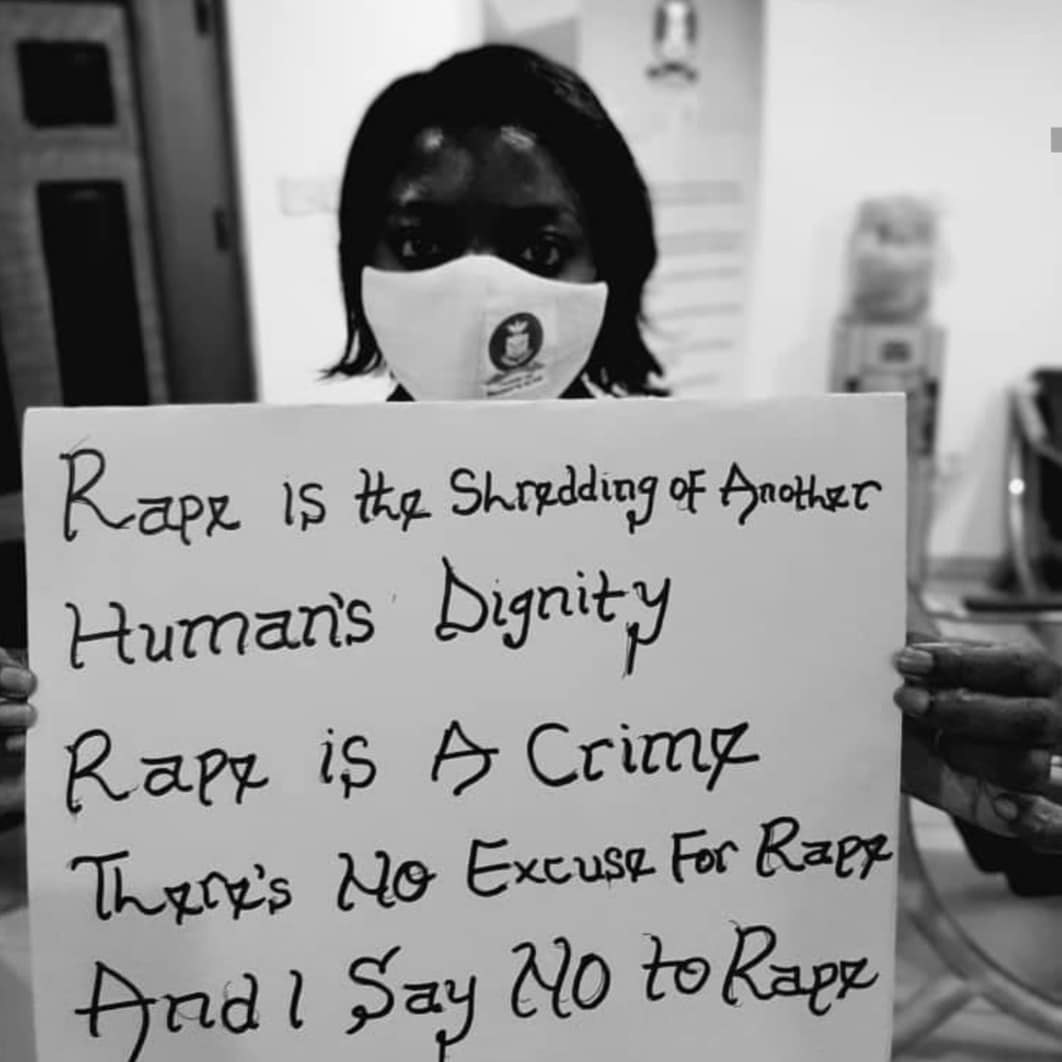 Rape is the Shredding of Another
Human's Dignity
Rape is A Crime
There's No Excuse For Rape
And I Say No to Rape